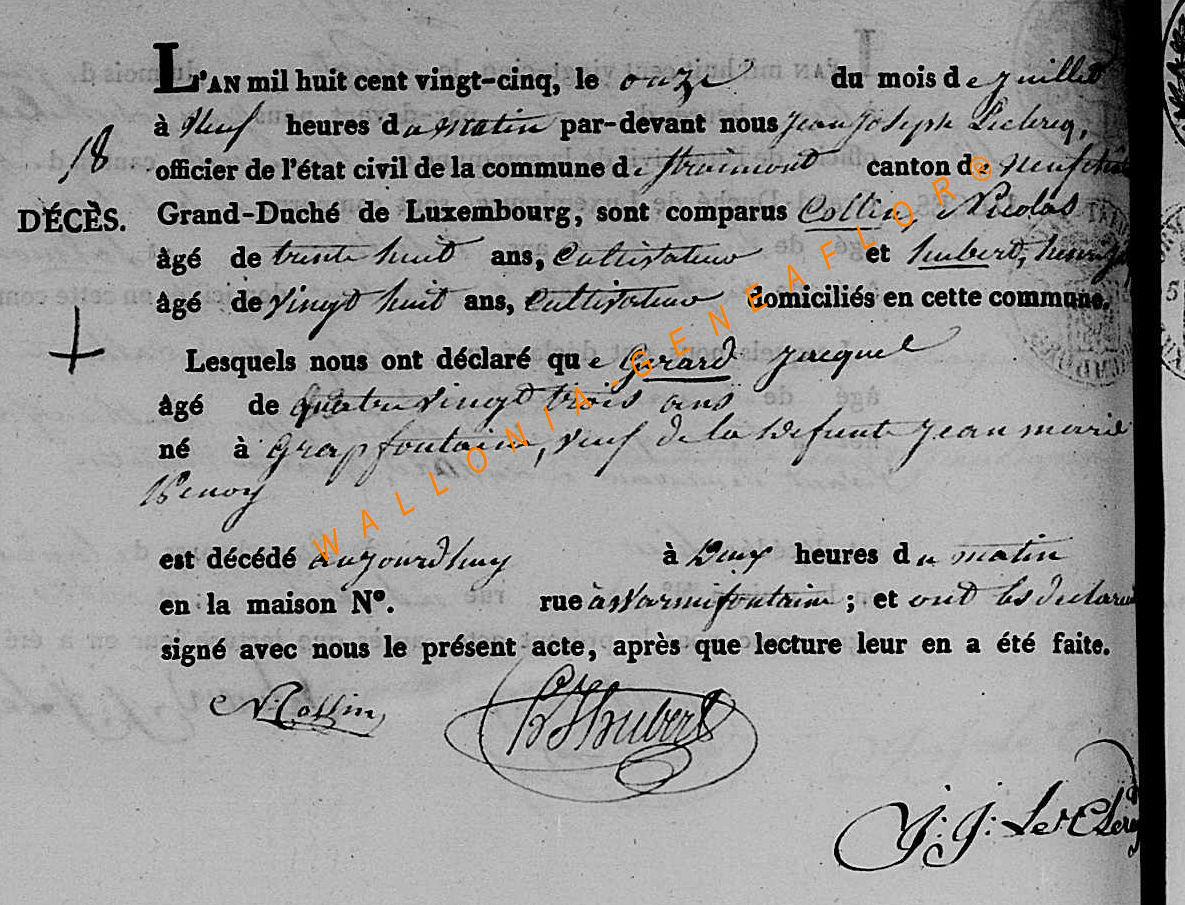 L'AN mil huit cent vingt-cinq, le onze du mois de juillet
à Neuf heures du matin par-devant nous jean joseph Leclercq,
18
officier de l'état civil de la commune de Straimont canton de neufchat
DÉCÈS.
Grand-Duché de Luxembourg, sont comparus Collin, Nicolas
âgé de trente huit ans, Cultivateur et hubert, henri j
âgé de vingt huit ans, Cultivateur domiciliés en cette commune.
Lesquels nous ont déclaré que Gerard jacque
âgé de quatre vingt trois ans
né à Grapfontaine, veuf de la defunte jean marie
est décédé aujourdhuy à Deux heures du matin
en la maison N°. rue à Warmifontaine ; et ont les declara
signé avec nous le présent acte, après que lecture leur en a été faite.
N: Collin
h J hubert
J: J: Le Cler
WALLONIA-GENEAFLOR®